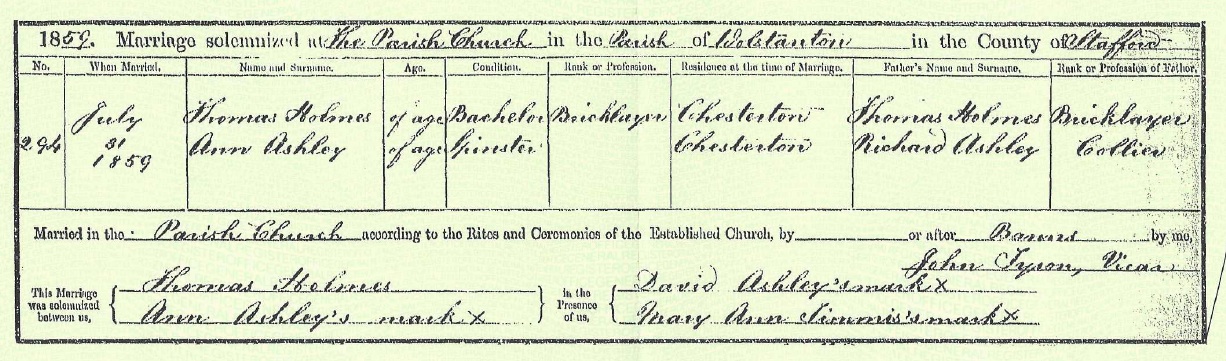 1859. Marriage solemnized at The Parish Church in the Parish of Wolstanton in the County of Stafford
No. When Married. Name and Surname. Age. Condition. Rank or Profession. Residence at the time of Marriage. Father's Name and Surname. Rank or Profession of Father.
294 July 31 1859
Thomas Holmes of age Bachelor Bricklayer Chesterton Thomas Holmes Bricklayer
Ann Ashley of age Spinster Chesterton Richard Ashley Collier
Married in the Parish Church according to the Rites and Ceremonies of the Established Church, by or after Banns by me,
John Tyson, Vicar
This Marriage was solemnized between us,
Thomas Holmes
Ann Ashley's mark x
in the Presence of us,
David Ashley's mark x
Mary Ann Timmis's mark x